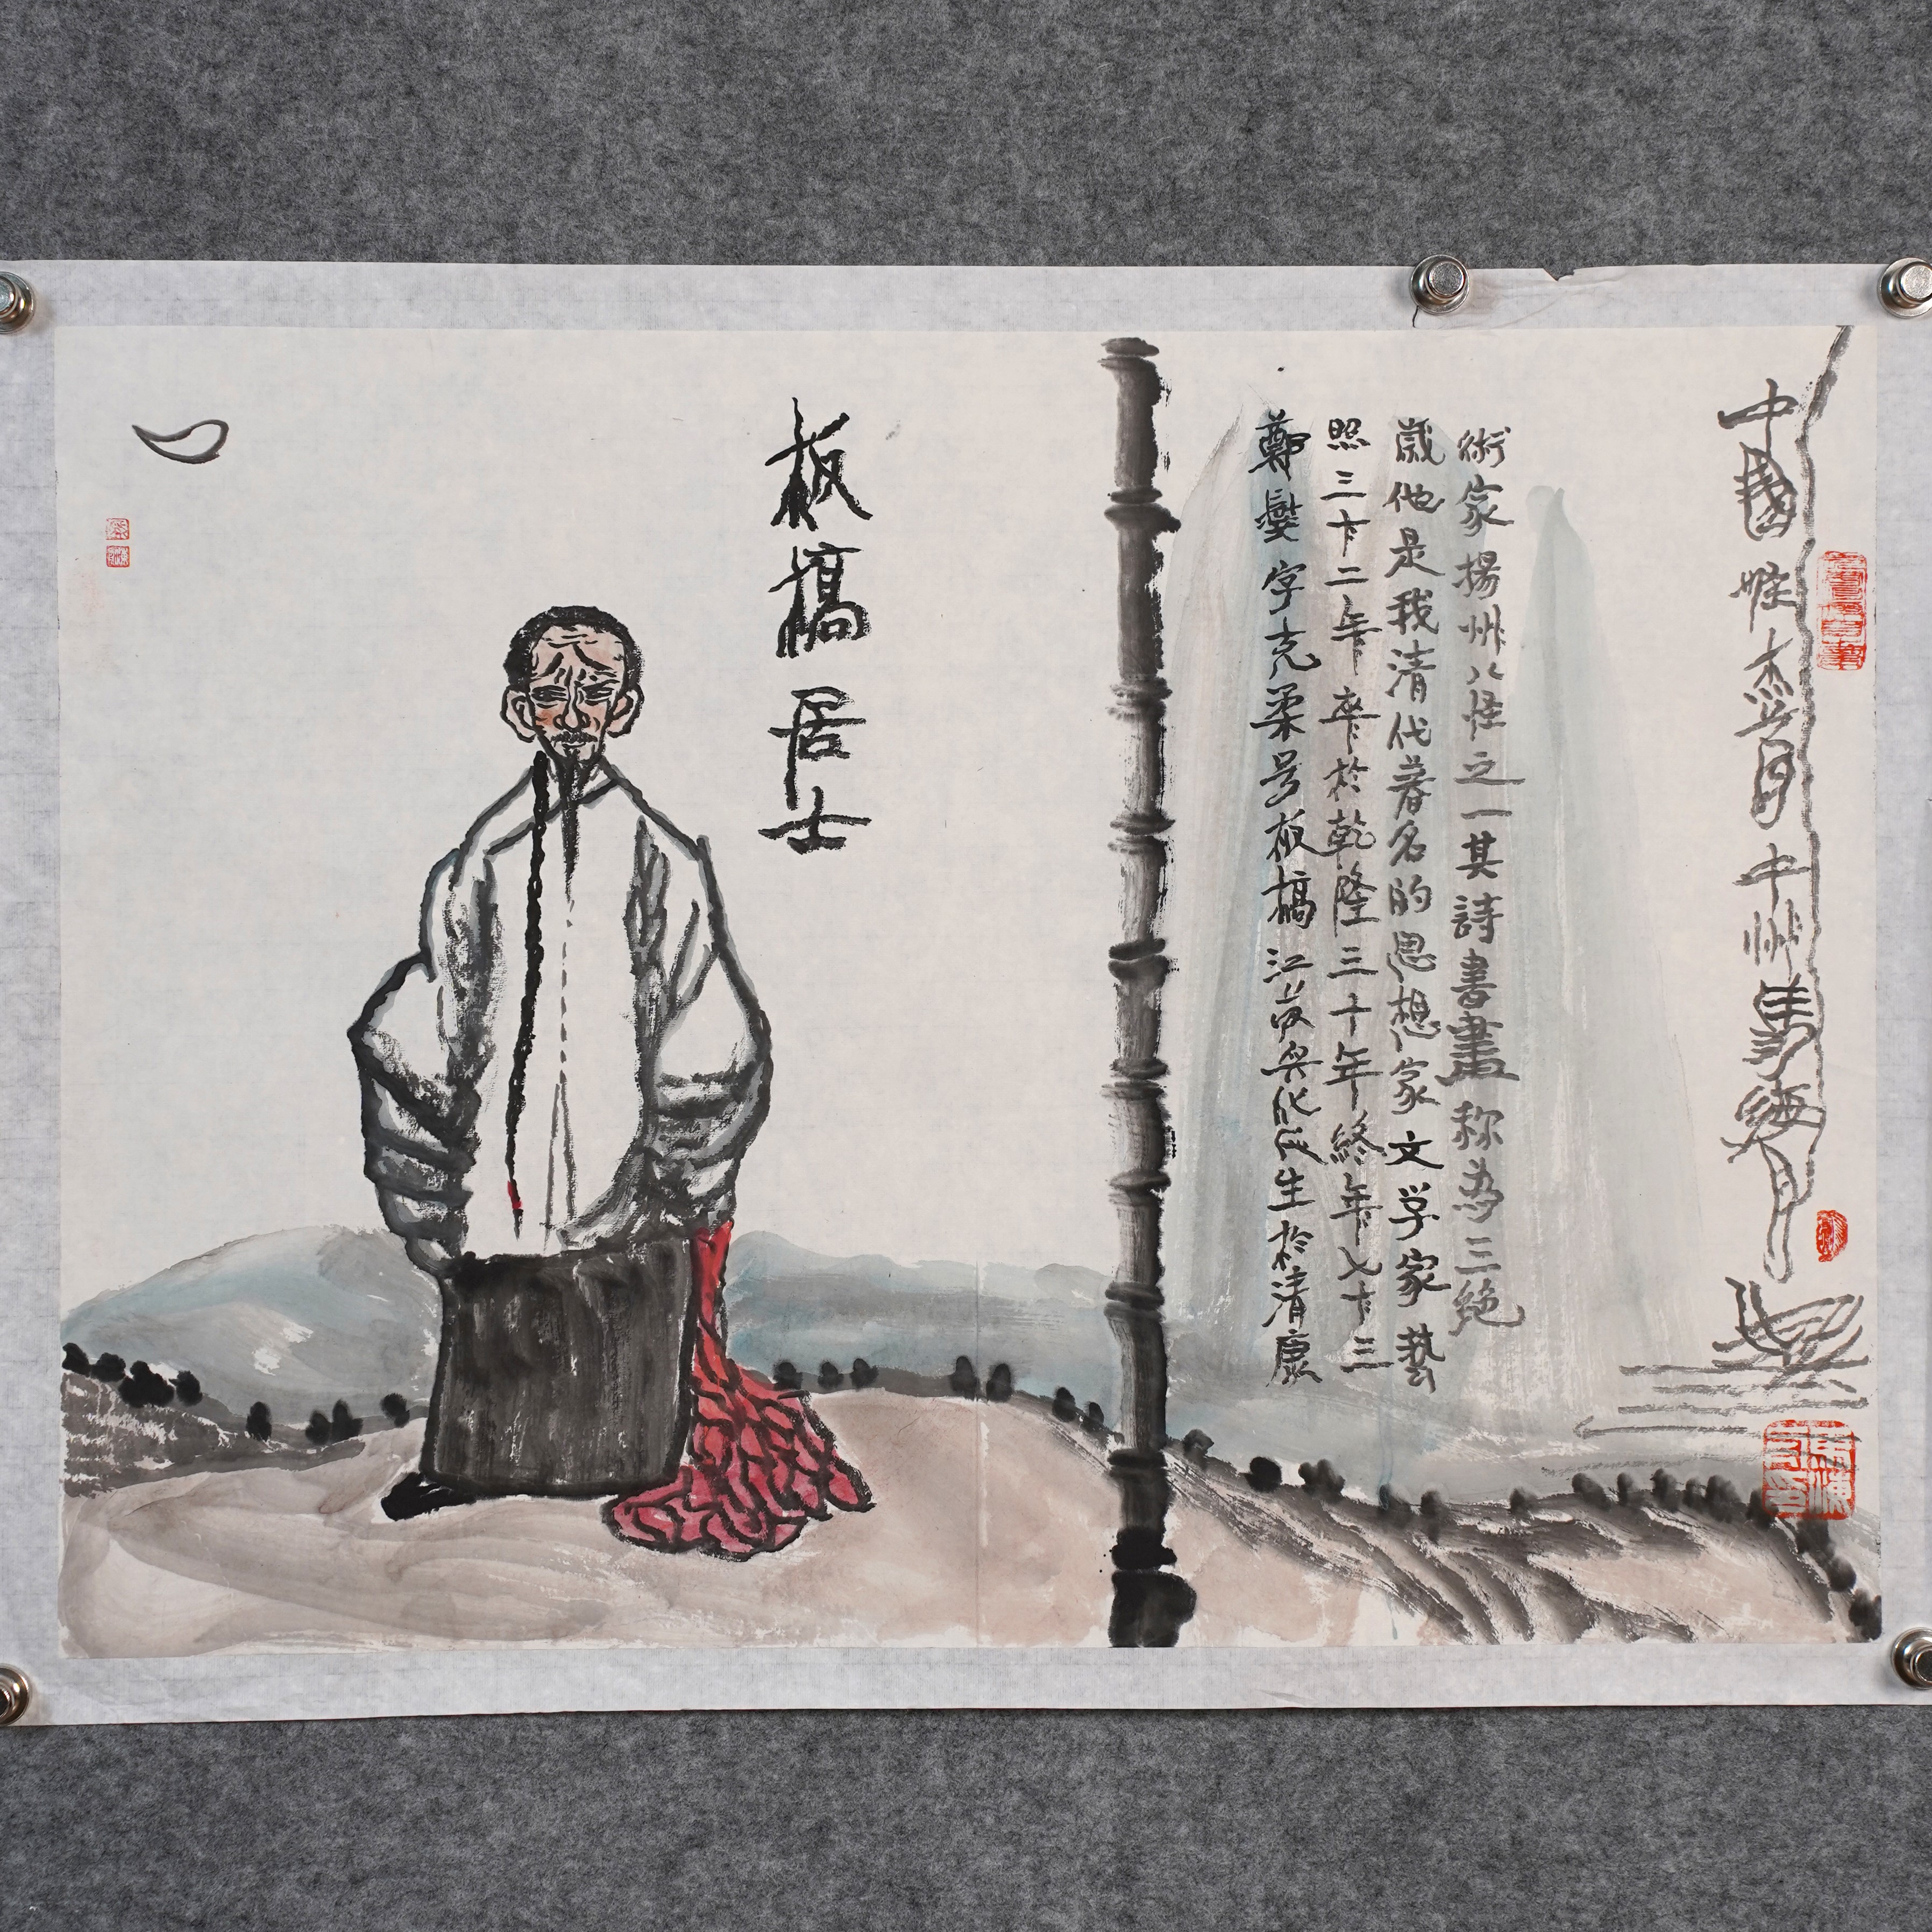 板橋居士
鄭燮字克柔号板橋江苏兴化生於清康
照三十二年卒於乾隆三十年終年七十三
歲他是我清代著名的思想家文学家藝
術家揚州八怪之一其詩書畫称为三絶
中國怪杰中州馬